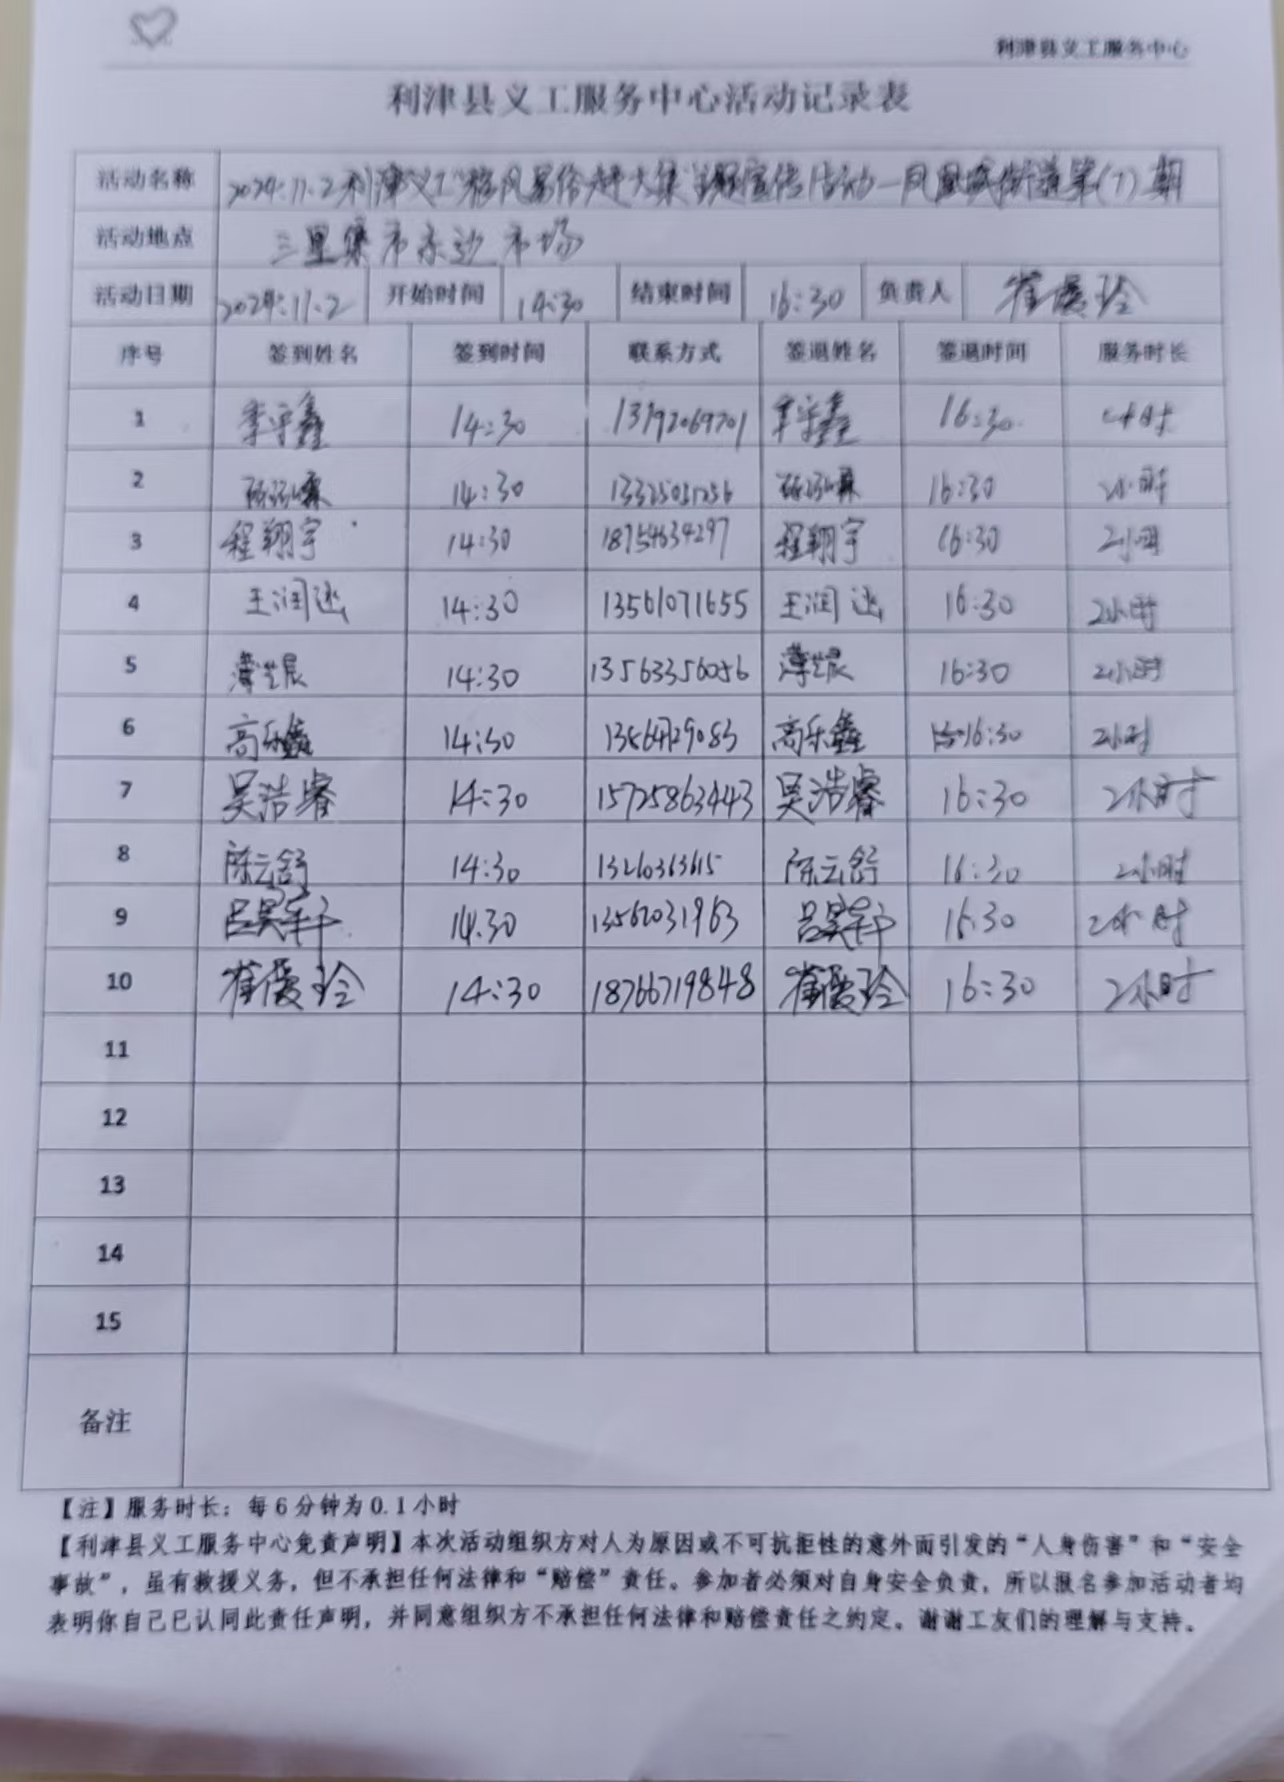 利津县义工服务中心
利津县义工服务中心活动记录表
活动名称 2024.11.2利津义工"移风易俗赶大集"主题宣传活动—凤凰城街道第(7)期
活动地点 三里集市东边市场
活动日期 2024.11.2 开始时间 14:30 结束时间 16:30 负责人 崔爱玲
序号 签到姓名 签到时间 联系方式 签退姓名 签退时间 服务时长
1 李宇鑫 14:30 13792069701 李宇鑫 16:30
2 14:30 16:30 2小时
3 程翔宇 14:30 18754634297 程翔宇 16:30 2小时
4 王润 14:30 13561071655 王润 16:30 2小时
5 薄芷辰 14:30 13563356056 薄芷辰 16:30 2小时
6 高乐鑫 14:30 高乐鑫 16:30 2小时
7 吴浩睿 14:30 15725863443 吴浩睿 16:30 2小时
8 陈云舒 14:30 陈云舒 16:30 2小时
9 吕昊轩 14:30 吕昊轩 16:30 2小时
10 崔爱玲 14:30 18766719848 崔爱玲 16:30 2小时
11
12
13
14
15
备注
【注】服务时长：每6分钟为0.1小时
【利津县义工服务中心免责声明】本次活动组织方对人为原因或不可抗拒性的意外而引发的“人身伤害”和“安全
事故”，虽有救援义务，但不承担任何法律和“赔偿”责任。参加者必须对自身安全负责，所以报名参加活动者均
表明你自己已认同此责任声明，并同意组织方不承担任何法律和赔偿责任之约定。谢谢工友们的理解与支持。